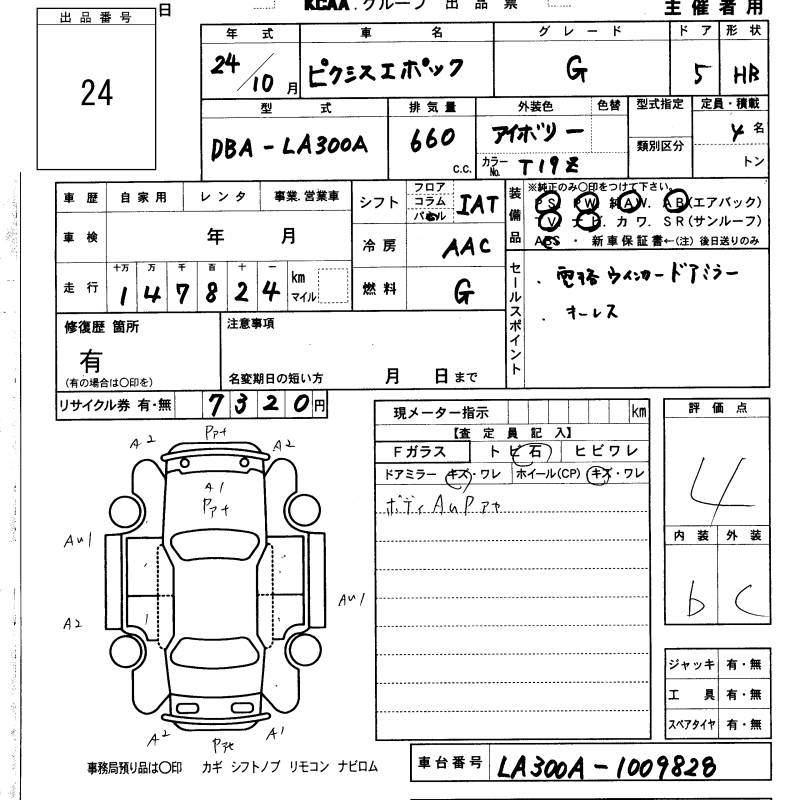 日 KCAA.グループ 出 品 票 主 催 者 用
出 品 番 号
24
年 式 車 名 グ レ ー ド ド ア 形 状
24/10 月 ピクシスエポック G 5 HB
型 式 排 気 量 外装色 色替 型式指定 定員・積載
DBA-LA300A 660 C.C. アイボリー 類別区分 4 名
カラーNo. T19Z トン
車 歴 自 家 用 レ ン タ 事業.営業車
車 検 年 月
走 行 十万 万 千 百 十 一
147824 km マイル
シフト フロア コラム パネル IAT
冷 房 AAC
燃 料 G
装備品 ※純正のみ〇印をつけて下さい。
PS PW 純AW. AB(エアバック)
TV ナビ. カ ワ. SR(サンルーフ)
ABS ・ 新 車 保 証 書 ←(注) 後日送りのみ
セールスポイント
・電格ウインカードアミラー
・キーレス
修復歴 箇所
有
(有の場合は〇印を)
注意事項
名変期日の短い方 月 日 まで
リサイクル券 有・無 7320 円
現メーター指示 km
【査 定 員 記 入】
Fガラス ト ビ 石 ヒ ビ ワ レ
ドアミラー キズ・ワレ ホイール(CP) キズ・ワレ
ボディAuPアセ
評 価 点
4
内 装 外 装
b C
ジャッキ 有・無
工 具 有・無
スペアタイヤ 有・無
A2 Pアセ A2
A1
Pアセ
AU1
AU1
A2
A2 Pアセ A1
事務局預り品は〇印 カギ シフトノブ リモコン ナビロム
車台番号 LA300A-1009828